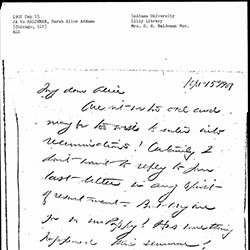 1907 Sep 15
JA to HALDEMAN, Sarah Alice Addams
[Chicago, Ill]
ALS
Indiana University
Lilly Library
Mrs. S. A. Haldeman Mss.
Sept 15 1907
My dear Alice
Are not in to and
may be too to enter into
recriminations! Certainly I
don't want to reply to your
last letter in any spirit
of resentment - But why are
you so unhappy? Has anything
happened this summer?